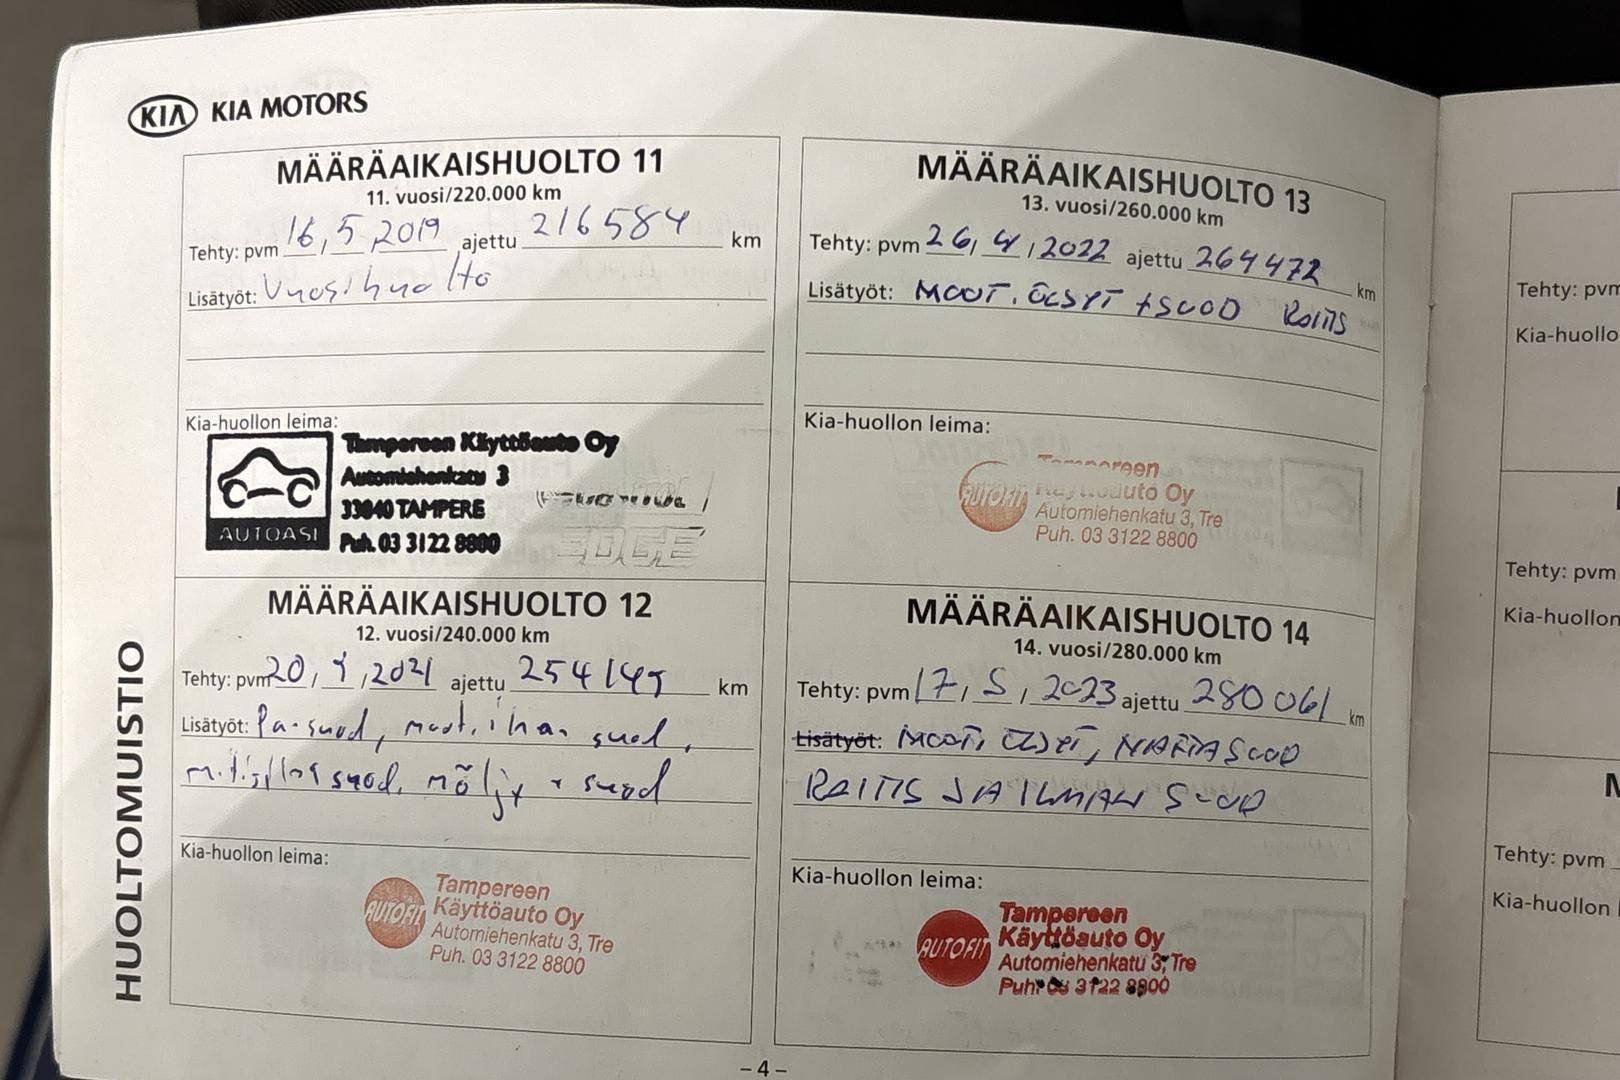 KIA KIA MOTORS
HUOLTOMUISTIO
MÄÄRÄAIKAISHUOLTO 11
11. vuosi/220.000 km
Tehty: pvm 16, 5, 2019 ajettu 216584 km
Lisätyöt: Vuosihuolto
Kia-huollon leima:
AUTOASI
Tampereen Käyttöauto Oy
Automiehenkatu 3
33840 TAMPERE
Puh. 03 3122 8800
EDGE
MÄÄRÄAIKAISHUOLTO 12
12. vuosi/240.000 km
Tehty: pvm 20, 4, 2021 ajettu 254145 km
Lisätyöt: Pa-suod, moot. ilman suod,
suod, möljy + suod
Kia-huollon leima:
AUTOFIT
Tampereen
Käyttöauto Oy
Automiehenkatu 3, Tre
Puh. 03 3122 8800
MÄÄRÄAIKAISHUOLTO 13
13. vuosi/260.000 km
Tehty: pvm 26, 4, 2022 ajettu 264472 km
Lisätyöt: MOOT. ÖLJYT + SUOD RAITIS
Kia-huollon leima:
AUTOFIT
Tampereen
Käyttöauto Oy
Automiehenkatu 3, Tre
Puh. 03 3122 8800
MÄÄRÄAIKAISHUOLTO 14
14. vuosi/280.000 km
Tehty: pvm 17, 5, 2023 ajettu 280061 km
Lisätyöt: MOOT. ÖLJYT, SUOD
RAITIS JA ILMAN SUOD
Kia-huollon leima:
AUTOFIT
Tampereen
Käyttöauto Oy
Automiehenkatu 3, Tre
Puh. 03 3122 8800
– 4 –
Tehty: pvm
Kia-huollo
Tehty: pvm
Kia-huollon
M
Tehty: pvm
Kia-huollon